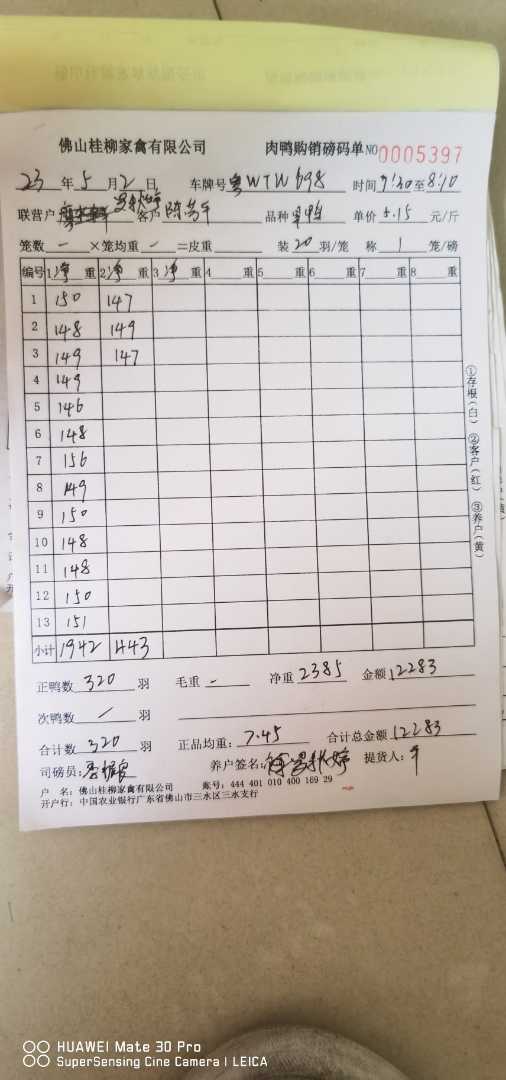 佛山桂柳家禽有限公司 肉鸭购销磅码单 NO 0005397
23 年 5 月 2 日 车牌号 粤WTW698 时间 7:30 至 8:10
联营户 客户 品种 单价 5.15 元/斤
笼数 一 ×笼均重 一 =皮重 装 20 羽/笼 称 1 笼/磅
编号 1 净 重 2 净 重 3 净 重 4 重 5 重 6 重 7 重 8 重
1 150 147
2 148 149
3 149 147
4 149
5 146
6 148
7 156
8 149
9 150
10 148
11 148
12 150
13 151
小计 1942 443
正鸭数 320 羽 毛重 - 净重 2385 金额 12283
次鸭数 / 羽
合计数 320 羽 正品均重: 7.45 合计总金额 12283
司磅员: 养户签名: 提货人:
户 名: 佛山桂柳家禽有限公司 账号: 444 401 010 400 169 29
开户行: 中国农业银行广东省佛山市三水区三水支行
①存根(白) ②客户(红) ③养户(黄)
HUAWEI Mate 30 Pro
SuperSensing Cine Camera | LEICA